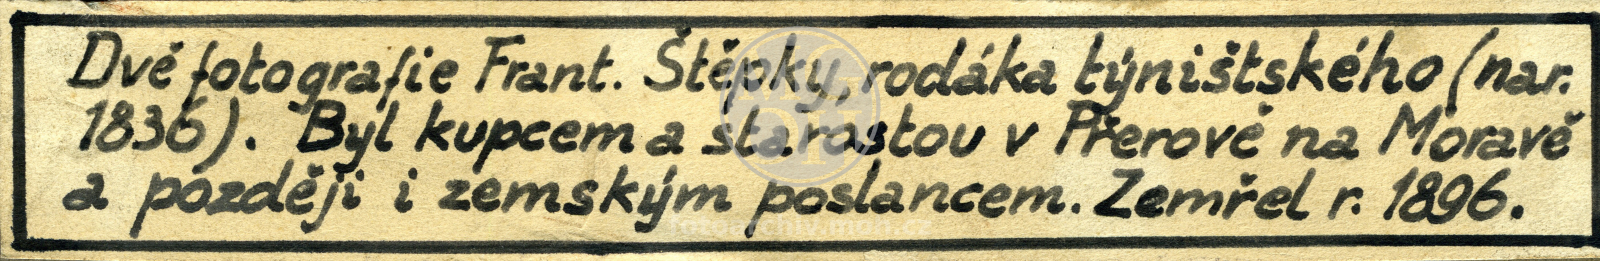 Dvě fotografie Frant. Štěpky, rodáka týništského (nar.
1836). Byl kupcem a starostou v Přerově na Moravě
a později i zemským poslancem. Zemřel r. 1896.
fotoarchiv.muh.cz